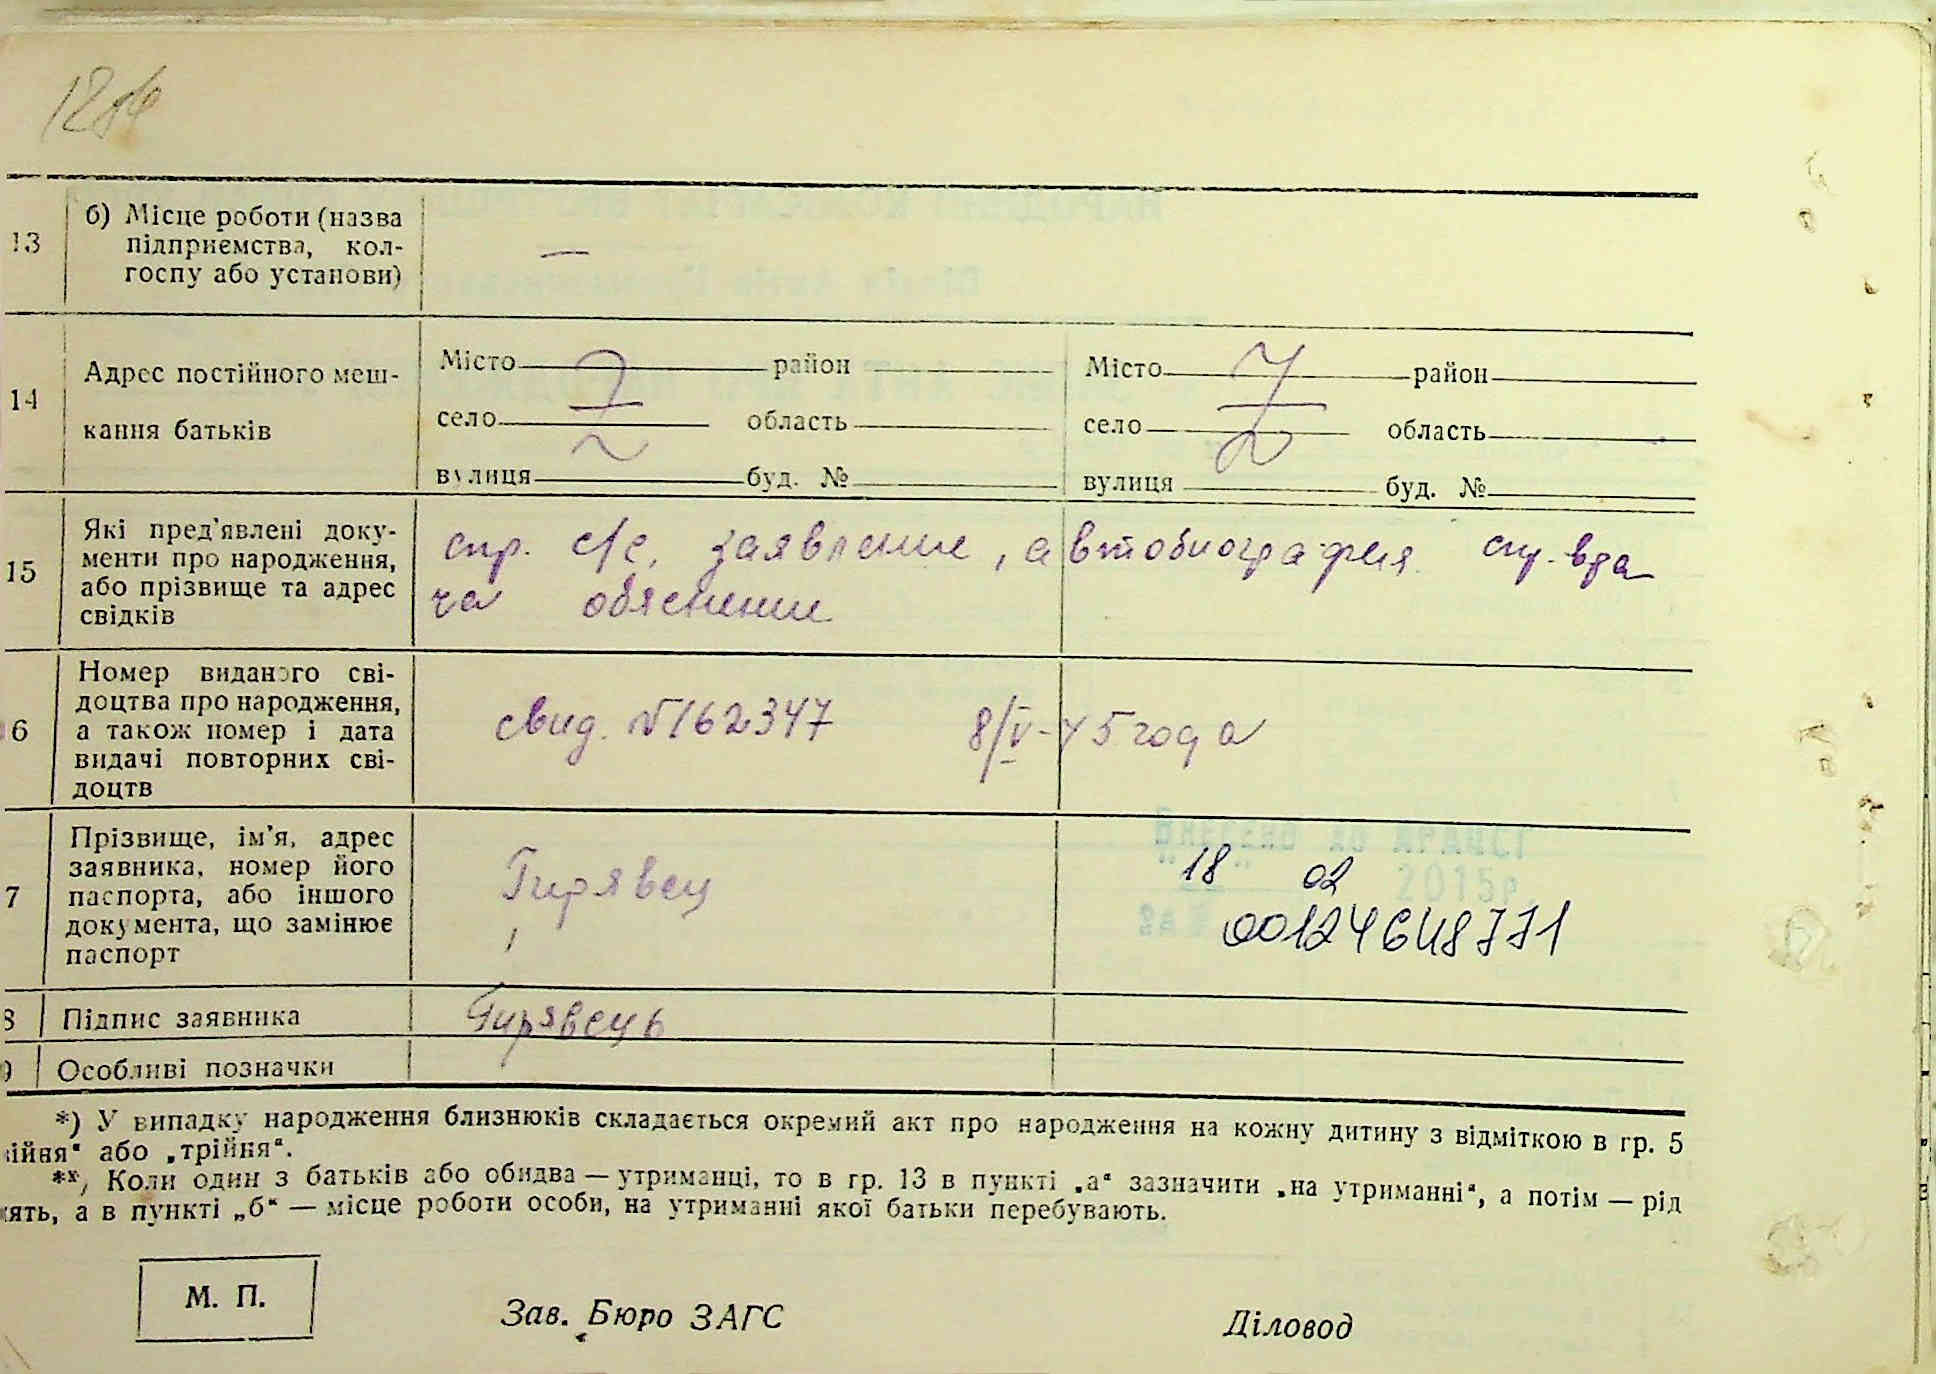 13
б) Місце роботи (назва
підприємства, кол-
госпу або установи)
—
14
Адрес постійного меш-
кання батьків
Місто район
село область
вулиця буд. №
Місто район
село область
вулиця буд. №
15
Які пред'явлені доку-
менти про народження,
або прізвище та адрес
свідків
спр. с/с, заявление, автобиография спр. вра
ча обяснение
6
Номер виданого сві-
доцтва про народження,
а також номер і дата
видачі повторних сві-
доцтв
свид. №162347 8/V-45 года
7
Прізвище, ім'я, адрес
заявника, номер його
паспорта, або іншого
документа, що замінює
паспорт
Гирявец
Внесено до ДРАЦСГ
18 02 2015р.
00124648771
8
Підпис заявника
Гирявець
9
Особливі позначки
*) У випадку народження близнюків складається окремий акт про народження на кожну дитину з відміткою в гр. 5
ійня" або „трійня".
**) Коли один з батьків або обидва — утриманці, то в гр. 13 в пункті „а" зазначити „на утриманні", а потім — рід
ять, а в пункті „б" — місце роботи особи, на утриманні якої батьки перебувають.
М. П.
Зав. Бюро ЗАГС
Діловод